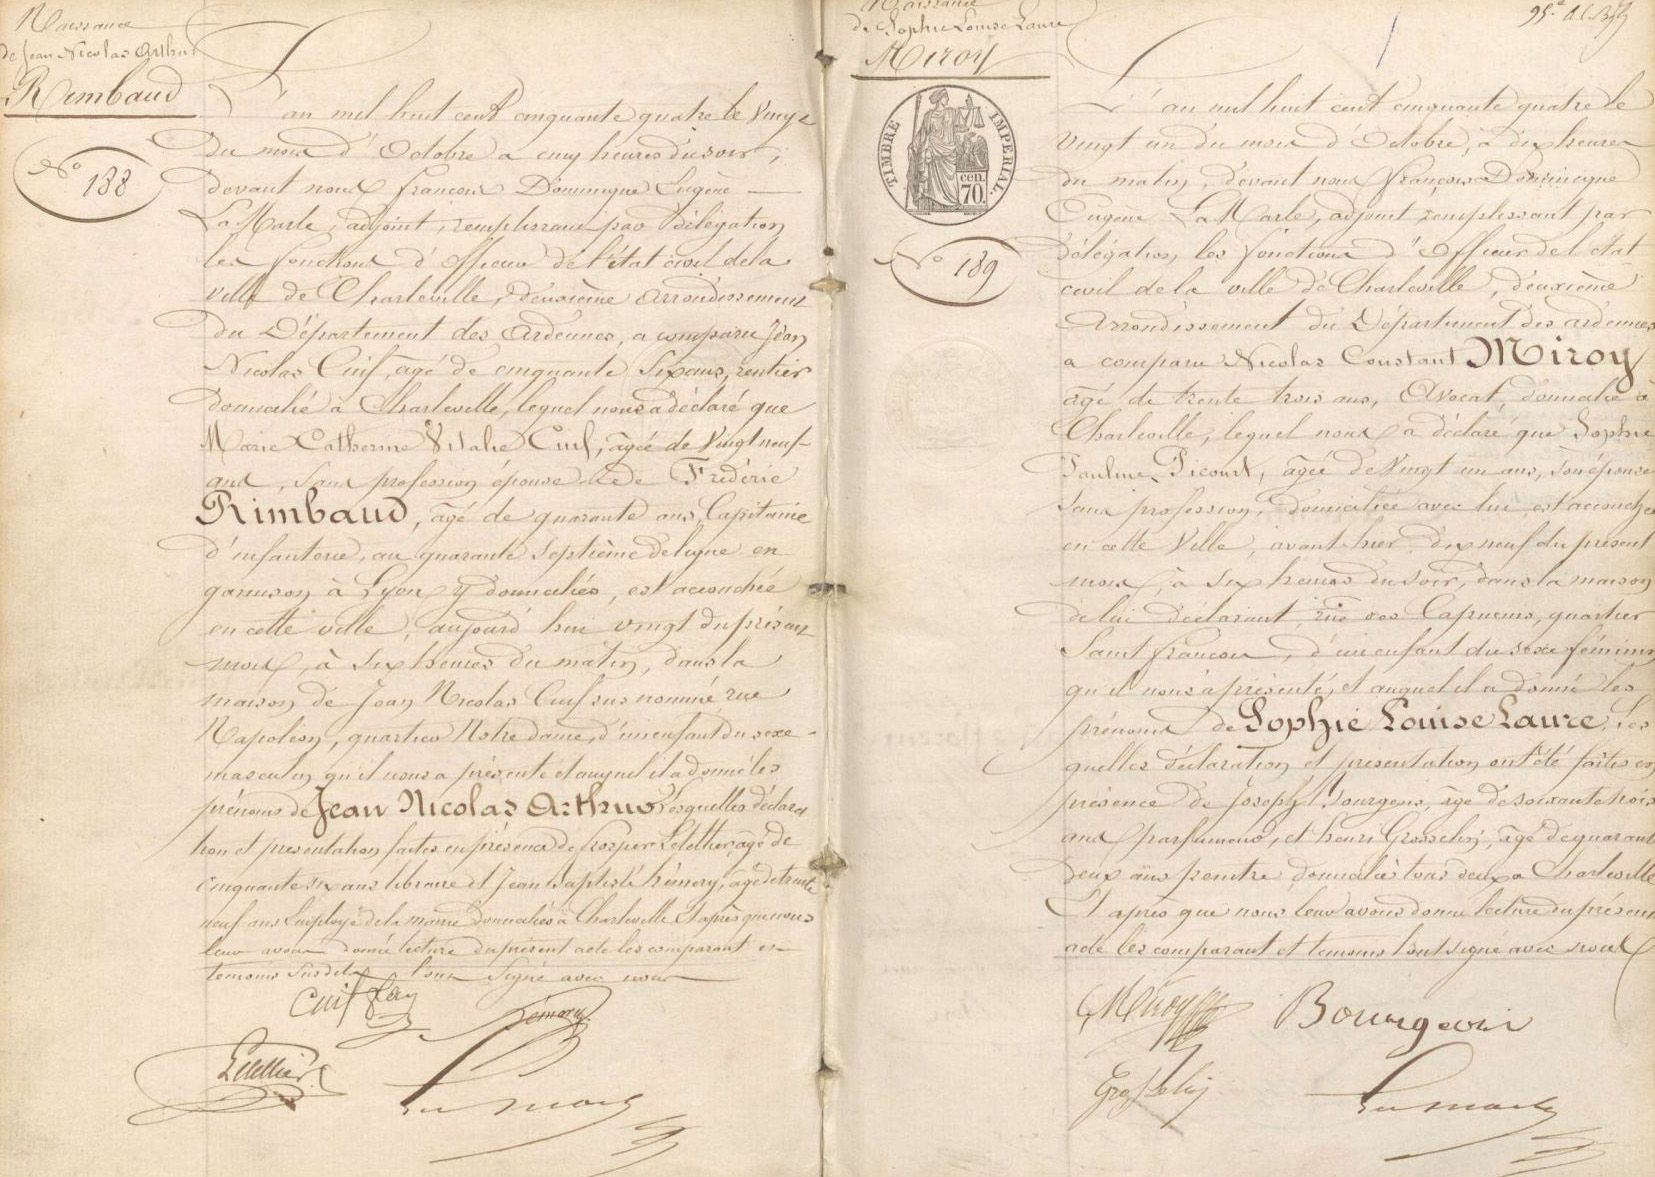 Naissance
de Jean Nicolas Arthur
Rimbaud
N° 188
L'an mil huit cent cinquante quatre le Vingt
du mois d'Octobre a cinq heures du soir,
devant nous François Dominique Eugène
La Marle, adjoint, remplissant par délégation
les fonctions d'officier de l'état civil de la
ville de Charleville, deuxième arrondissement
du Département des Ardennes, a comparu Jean
Nicolas Cuif, agé de cinquante six ans, rentier
domicilié à Charleville, lequel nous a déclaré que
Marie Catherine Vitalie Cuif, agée de Vingt neuf
ans, sans profession épouse de Frédéric
Rimbaud, agé de quarante ans, Capitaine
d'infanterie, au quarante septième de ligne en
garnison à Lyon y domicilies, est accouchée
en cette ville, aujourd'hui vingt du présent
mois, à six heures du matin, dans la
maison de Jean Nicolas Cuif sus nommé rue
Napoléon, quartier Notre dame, d'un enfant du sexe
masculin qu'il nous a présenté et auquel il a donné les
prénoms de Jean Nicolas Arthur Lesquelles déclara
tion et presentation faites en présence de Prosper Letellier, agé de
Cinquante six ans libraire et Jean Baptiste hémery, agé de trente
neuf ans Employé de la mairie domiciliés à Charleville Et après que nous
leur avons donné lecture du présent acte les comparant et
temoins susdits l'ont signé avec nous
Cuif
hémery
Letellier
La marle
Naissance
de Sophie Louise Laure
Miroy
TIMBRE IMPERIAL.
cen.
70.
N° 189
L'an mil huit cent cinquante quatre le
vingt un du mois d'Octobre, à dix heures
du matin, devant nous François Dominique
Eugène La Marle, adjoint remplissant par
délégation, les fonctions d'Officier de l'état
civil de la ville de Charleville, deuxième
Arrondissement du Département des ardennes
a comparu Nicolas Constant Miroy
agé de trente trois ans, Avocat, domicilié à
Charleville, lequel nous a déclaré que Sophie
Pauline Picourt, agée de Vingt un ans, son épouse
sans profession, domiciliée avec lui, est accouchée
en cette Ville, avant hier dix neuf du présent
mois, à six heures du soir, dans la maison
de lui déclarant, rue des Capucins, quartier
Saint François, d'un enfant du sexe féminin
qu'il nous a présenté, et auquel il a donné les
prénoms de Sophie Louise Laure. Les
quelles déclaration et presentation ont été faites en
présence de Joseph Bourgeois, agé de soixante trois
ans parfumeur, et henri Grosselin, agé de quarante
deux ans peintre, domiciliés tous deux a Charleville
Et après que nous leur avons donné lecture du présent
acte les comparant et temoins l'ont signé avec nous
Miroy
Bourgeois
Grosselin
La marle